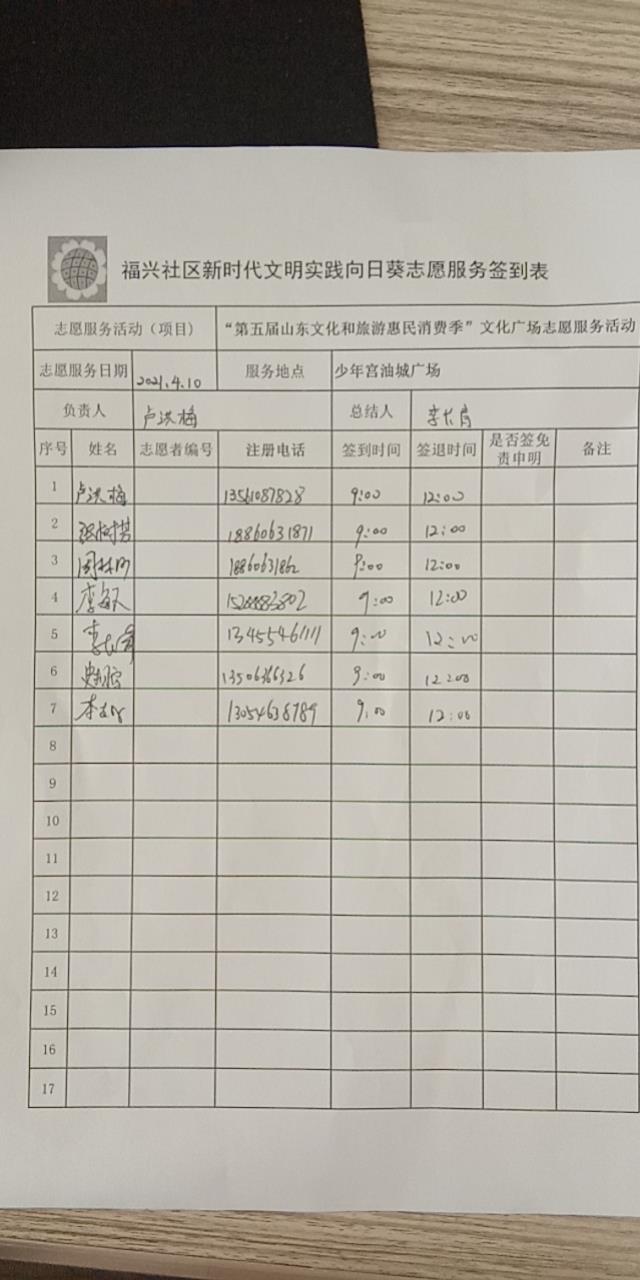 福兴社区新时代文明实践向日葵志愿服务签到表
志愿服务活动（项目） “第五届山东文化和旅游惠民消费季”文化广场志愿服务活动
志愿服务日期 2021.4.10 服务地点 少年宫油城广场
负责人 卢洪梅 总结人
序号 姓名 志愿者编号 注册电话 签到时间 签退时间 是否签免责申明 备注
1 卢洪梅 13561087828 9:00 12:00
2 18860631871 9:00 12:00
3 18860631862 9:00 12:00
4 李敏 9:00 12:00
5 13455461111 9:00 12:00
6 9:00 12:00
7 13054638789 9:00 12:00
8
9
10
11
12
13
14
15
16
17